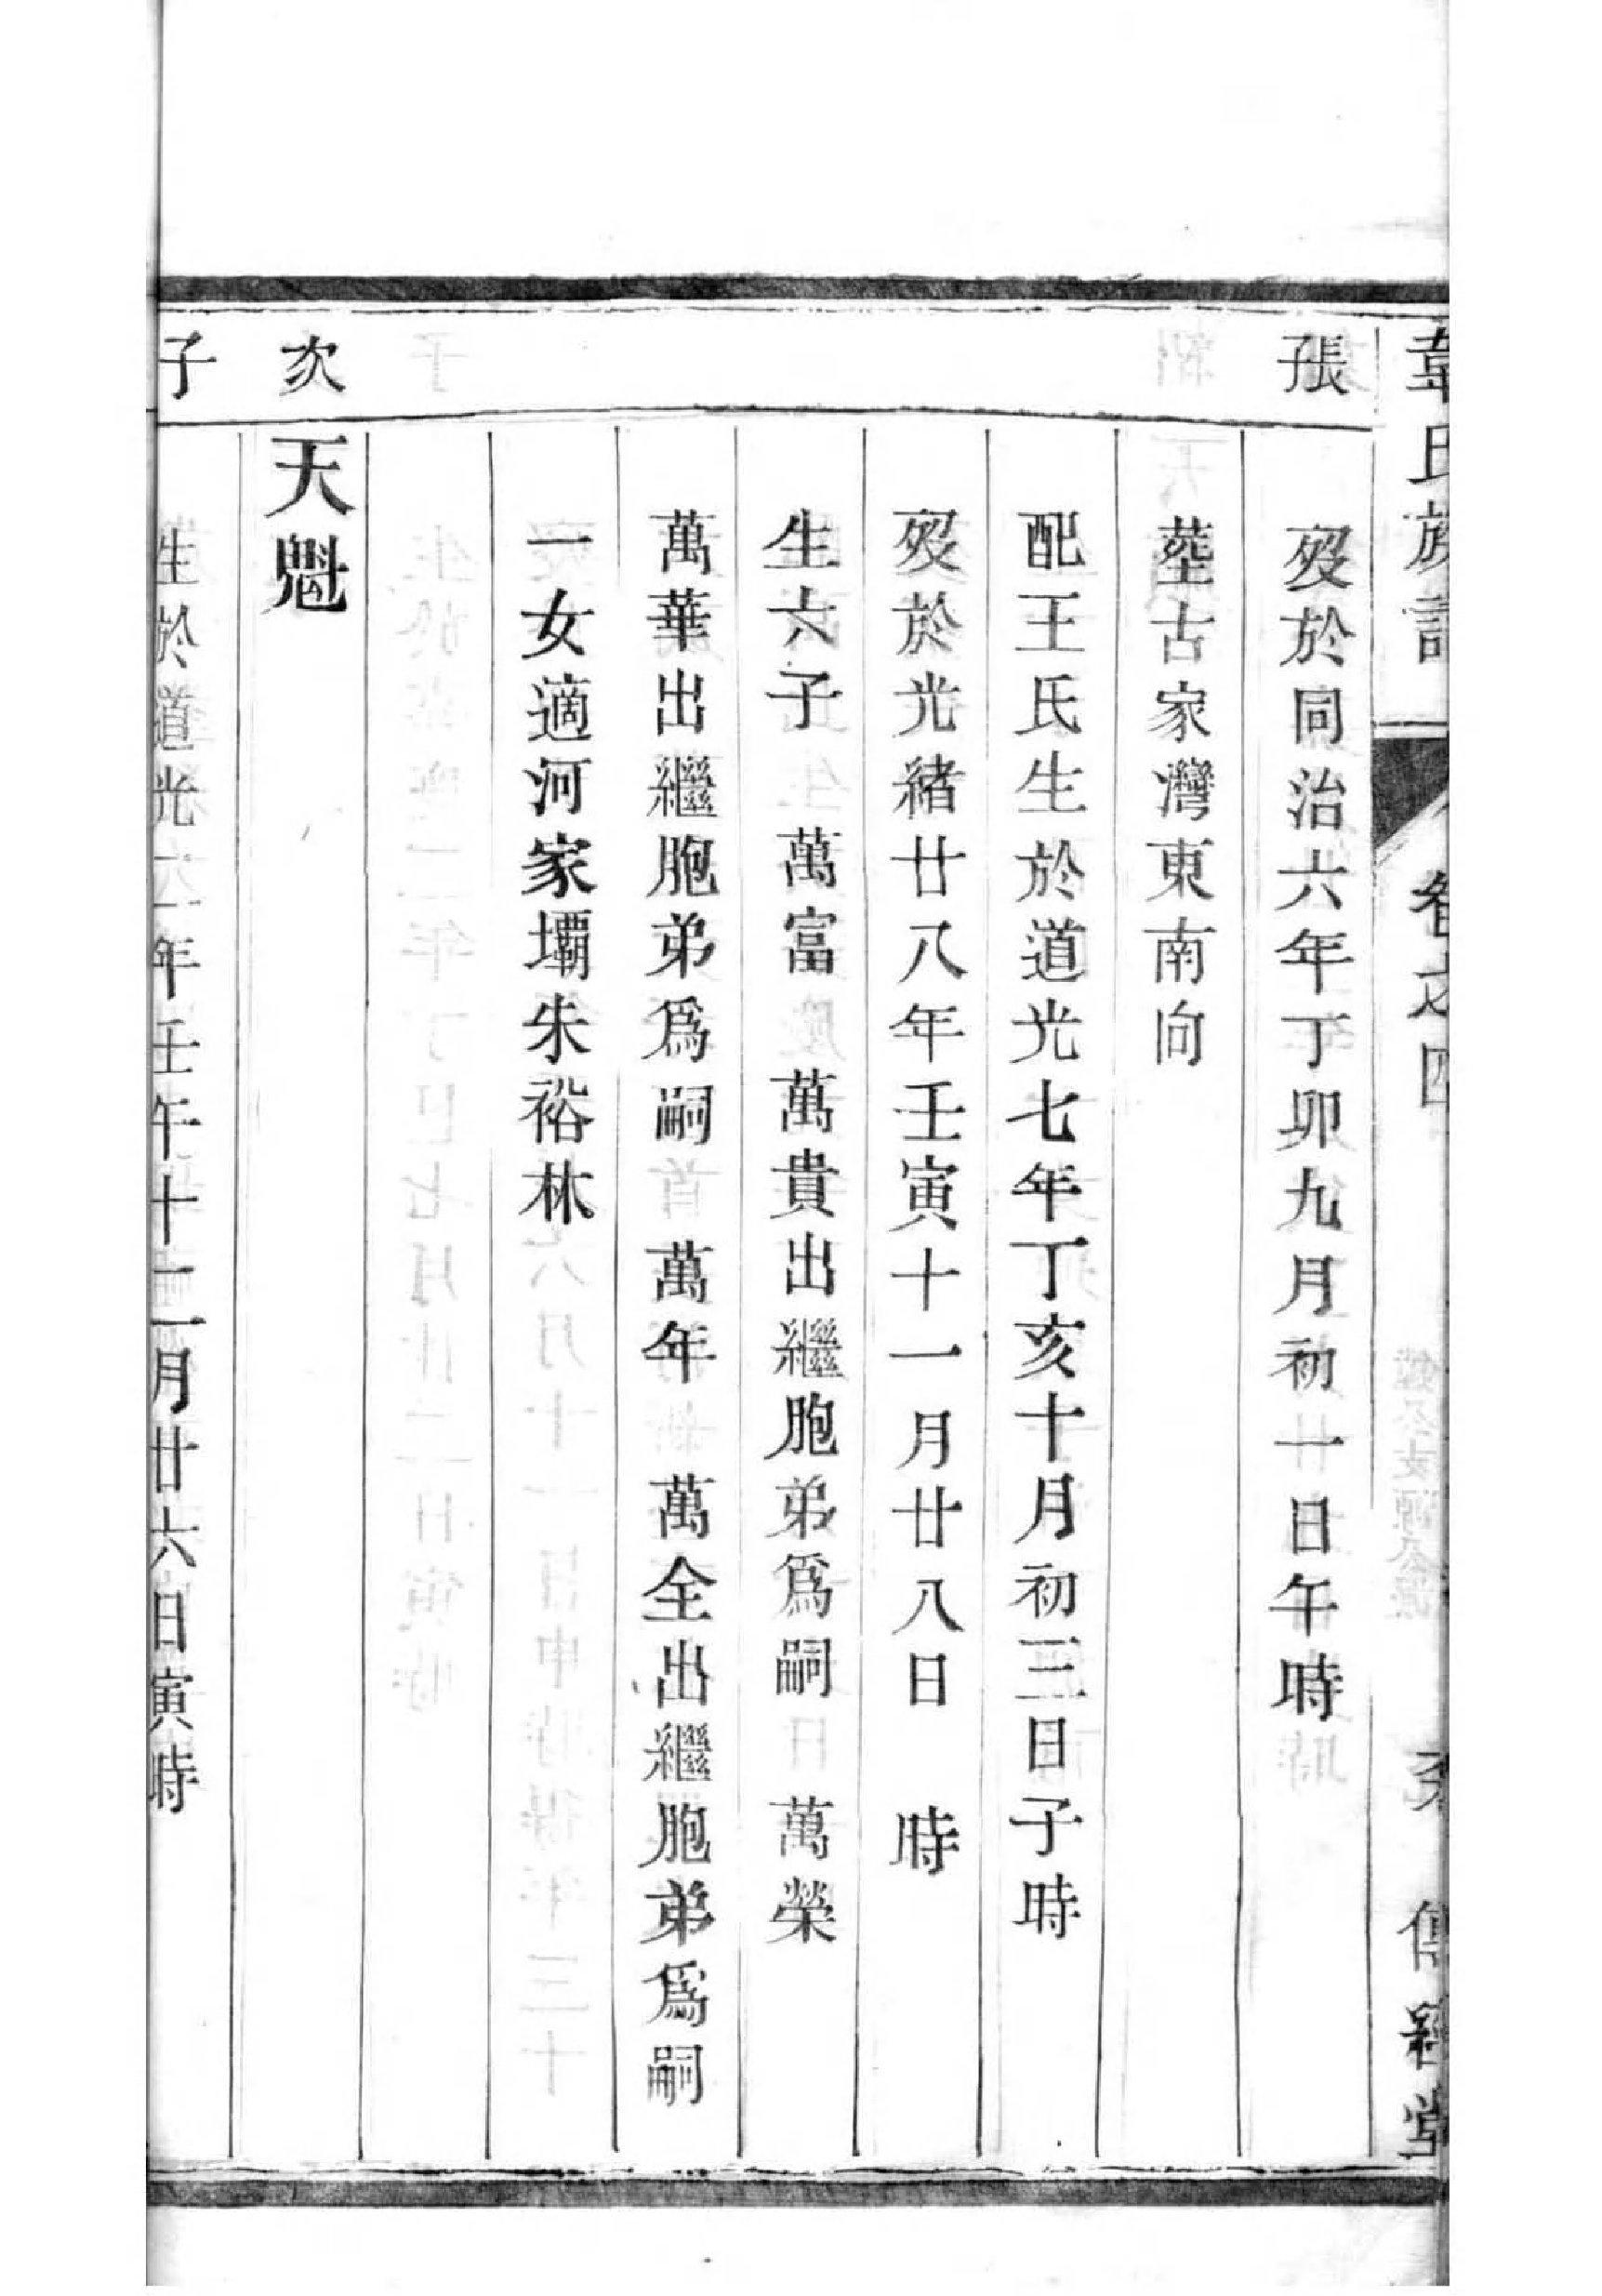 韋氏族譜
卷之四
傳經堂
張
歿於同治六年丁卯九月初一日午時
塟古家灣東南向
配王氏生於道光七年丁亥十月初三日子時
歿於光緒廿八年壬寅十一月廿八日　時
生六子　萬富　萬貴出繼胞弟爲嗣　萬榮
萬華出繼胞弟爲嗣　萬年　萬全出繼胞弟爲嗣
一女適河家壩朱裕林
次
天魁
子
生於道光二年壬午十二月廿六日寅時